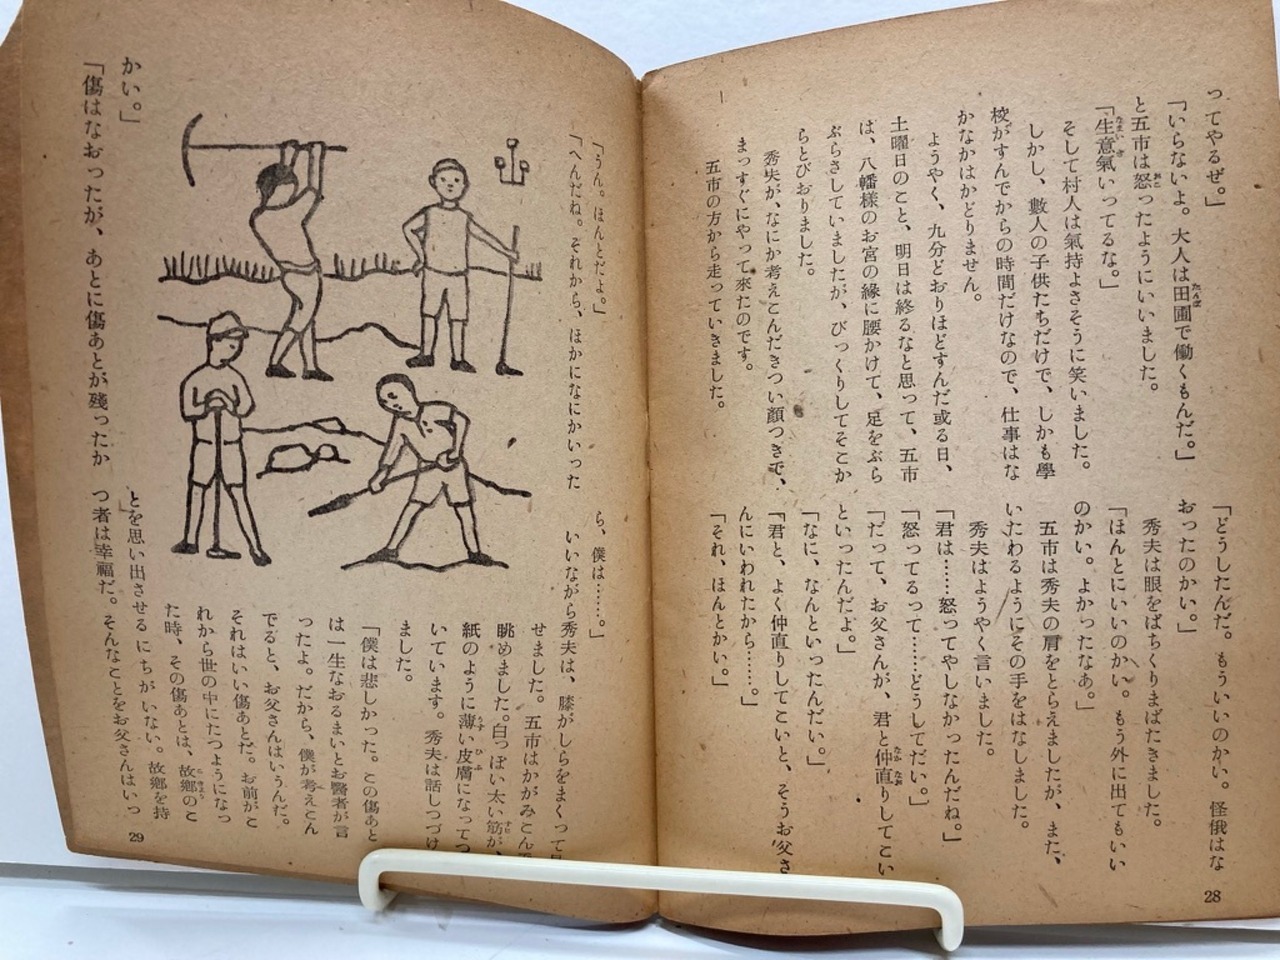 ってやるぜ。」
「いらないよ。大人は田圃で働くもんだ。」
と五市は怒ったようにいいました。
「生意氣いってるな。」
そして村人は氣持よさそうに笑いました。
しかし、數人の子供たちだけで、しかも學
校がすんでからの時間だけなので、仕事はな
かなかはかどりません。
ようやく、九分どおりほどすんだ或る日、
土曜日のこと、明日は終るなと思って、五市
は、八幡様のお宮の緣に腰かけて、足をぶら
ぶらさしていましたが、びっくりしてそこか
らとびおりました。
秀夫が、なにか考えこんだきつい顏つきで、
まっすぐにやって來たのです。
五市の方から走っていきました。
「どうしたんだ。もういいのかい。怪俄はな
おったのかい。」
秀夫は眼をぱちくりまばたきました。
「ほんとにいいのかい。もう外に出てもいい
のかい。よかったなあ。」
五市は秀夫の肩をとらえましたが、また、
いたわるようにその手をはなしました。
秀夫はようやく言いました。
「君は……怒ってやしなかったんだね。」
「怒ってるって……どうしてだい。」
「だって、お父さんが、君と仲直りしてこい
といったんだよ。」
「なに、なんといったんだい。」
「君と、よく仲直りしてこいと、そうお父さ
んにいわれたから……。」
「それ、ほんとかい。」
28
「うん。ほんとだよ。」
「へんだね。それから、ほかになにかいった
かい。」
「傷はなおったが、あとに傷あとが殘ったか
ら、僕は……。」
いいながら秀夫は、膝がしらをまくって
せました。五市はかがみこんで
眺めました。白っぽい太い筋が、
紙のように薄い皮膚になってつ
いています。秀夫は話しつづけ
ました。
「僕は悲しかった。この傷あと
は一生なおるまいとお醫者が言
ったよ。だから、僕が考えこん
でると、お父さんはいうんだ。
それはいい傷あとだ。お前がこ
れから世の中にたつようになっ
た時、その傷あとは、故鄕のこ
とを思い出させるにちがいない。故鄕を持
つ者は幸福だ。そんなことをお父さんはいっ
29